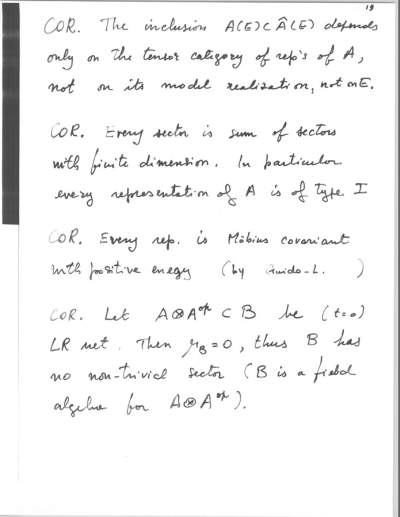 19
COR. The inclusion A(E)⊂Â(E) depends
only on the tensor category of rep's of A,
not on its model realization, not on E.
COR. Every sector is sum of sectors
with finite dimension. In particular
every representation of A is of type I
COR. Every rep. is Möbius covariant
with positive energy (by Guido-L. )
COR. Let A⊗A^op ⊂ B be (t=0)
LR net. Then μ_B=0, thus B has
no non-trivial sector (B is a field
algebra for A⊗A^op).